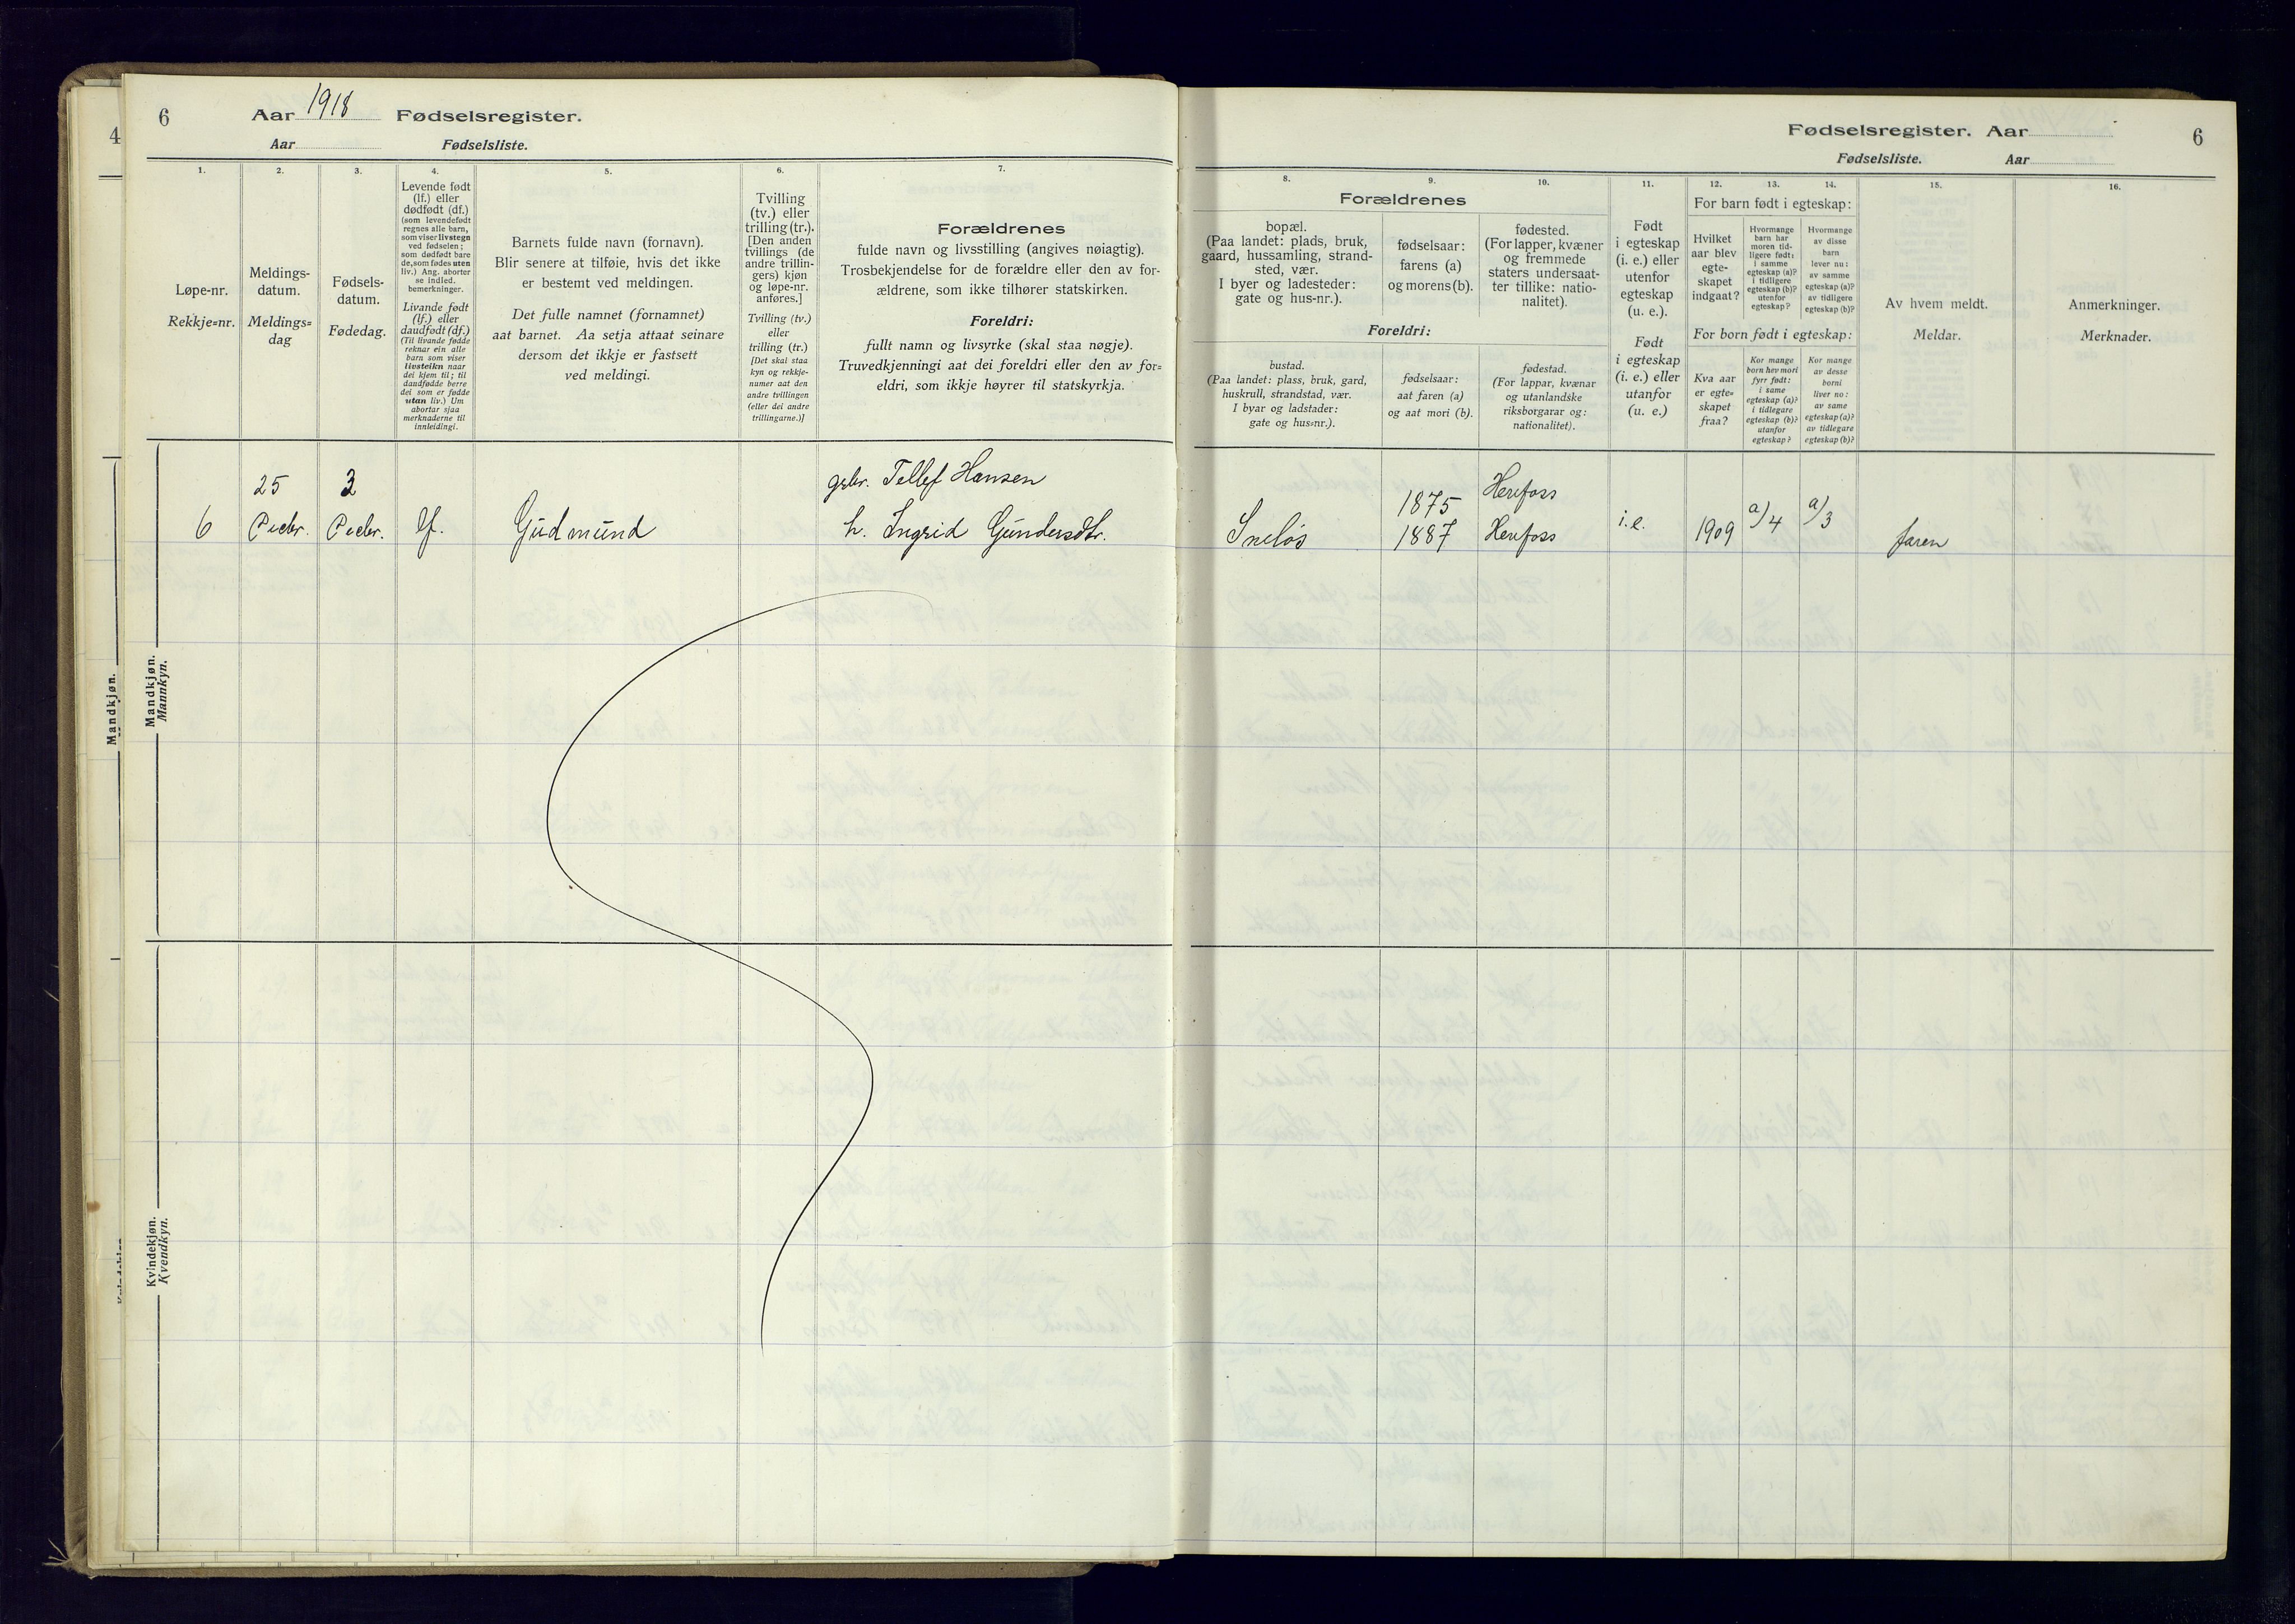 6
Aar 1918 Fødselsregister.
Aar Fødselsliste.
1.
Løpe-nr.
Rekkje=nr.
2.
Meldings-
datum.
Meldings=
dag
3.
Fødsels-
datum.
Fødedag.
4.
Levende født
(lf.) eller
dødfødt (df.)
(som levendefødt
regnes alle barn,
som viser livstegn
ved fødselen;
som dødfødt bare
de, som fødes uten
liv.) Ang. aborter
se indled.
bemerkninger.
Livande født
(lf.) eller
daudfødt (df.)
(Til livande fødde
reknar ein alle
barn som viser
livsteikn naar
dei kjem til; til
daudfødde berre
dei som er fødde
utan liv.) Um
abortar sjaa
merknaderne til
innleidingi.
5.
Barnets fulde navn (fornavn).
Blir senere at tilføie, hvis det ikke
er bestemt ved meldingen.
Det fulle namnet (fornamnet)
aat barnet. Aa setja attaat seinare
dersom det ikkje er fastsett
ved meldingi.
6.
Tvilling
(tv.) eller
trilling (tr.).
[Den anden
tvillings (de
andre trillin-
gers) kjøn
og løpe-nr.
anføres.]
Tvilling (tv.)
eller
trilling (tr.)
[Det skal staa
kyn og rekkje-
numer aat den
andre tvillingen
(eller dei andre
trillingarne.)]
7.
Forældrenes
fulde navn og livsstilling (angives nøiagtig).
Trosbekjendelse for de forældre eller den av for-
ældrene, som ikke tilhører statskirken.
Foreldri:
fullt namn og livsyrke (skal staa nøgje).
Truvedkjenningi aat dei foreldri eller den av for=
eldri, som ikkje høyrer til statskyrkja.
Mandkjøn.
Mannkyn.
6
25
Decbr.
3
Decbr.
lf.
Gudmund
gbr. Tellef Hansen
h. Ingrid Gundersdtr.
Kvindekjøn.
Kvendkyn.
4
Mandkjøn.
Fødselsregister. Aar
6
Fødselsliste. Aar
8.
9.
10.
Forældrenes
bopæl.
(Paa landet: plads, bruk,
gaard, hussamling, strand-
sted, vær.
I byer og ladesteder:
gate og hus-nr.).
fødselsaar:
farens (a)
og morens (b).
fødested.
(For lapper, kvæner
og fremmede
staters undersaat-
ter tillike: natio-
nalitet).
Foreldri:
bustad.
(Paa landet: plass, bruk, gard,
huskrull, strandstad, vær.
I byar og ladstader:
gate og hus=nr.).
fødselsaar:
aat faren (a)
og aat mori (b).
fødestad.
(For lappar, kvænar
og utanlandske
riksborgarar og:
nationalitet).
11.
Født
i egteskap
(i. e.) eller
utenfor
egteskap
(u. e.).
Født
i egteskap
(i. e.) eller
utanfor
(u. e.)
12.
13.
14.
For barn født i egteskap:
Hvilket
aar blev
egte-
skapet
indgaat?
Hvormange
barn har
moren tid-
ligere født:
i samme
egteskap (a)?
i tidligere
egteskap (b)?
utenfor
egteskap?
Hvormange
av disse
barn
lever nu:
av samme
egteskap (a)?
av tidligere
egteskap (b)?
For born født i egteskap:
Kva aar
er egte=
skapet
fraa?
Kor mange
born hev mori
fyrr født:
i same
egteskap (a)?
i tidlegare
egteskap (b)?
utanfor
egteskap?
Kor mange
av desse
borni
liver no:
av same
egteskap (a)?
av tidlegare
egteskap (b)?
15.
Av hvem meldt.
Meldar.
16.
Anmerkninger.
Merknader.
Sneløs
1875
1887
Herefoss
Herefoss
i.e.
1909
a/4
a/3
faren